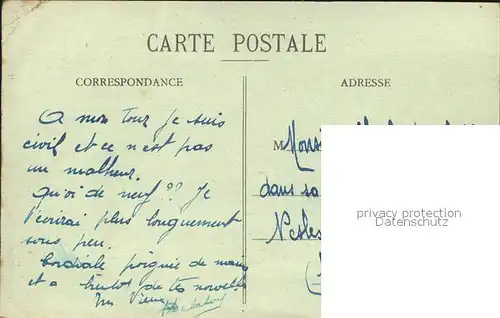 CARTE POSTALE
CORRESPONDANCE
ADRESSE
A mon tour je suis
civil et ce n'est pas
un malheur.
Quoi de neuf ?? Je
t'ecrirai plus longuement
sous peu.
Cordiale poignée de mains
et a bientot de tes nouvelles
Ton Vieux
M
dans sa
Nesles
privacy protection
Datenschutz